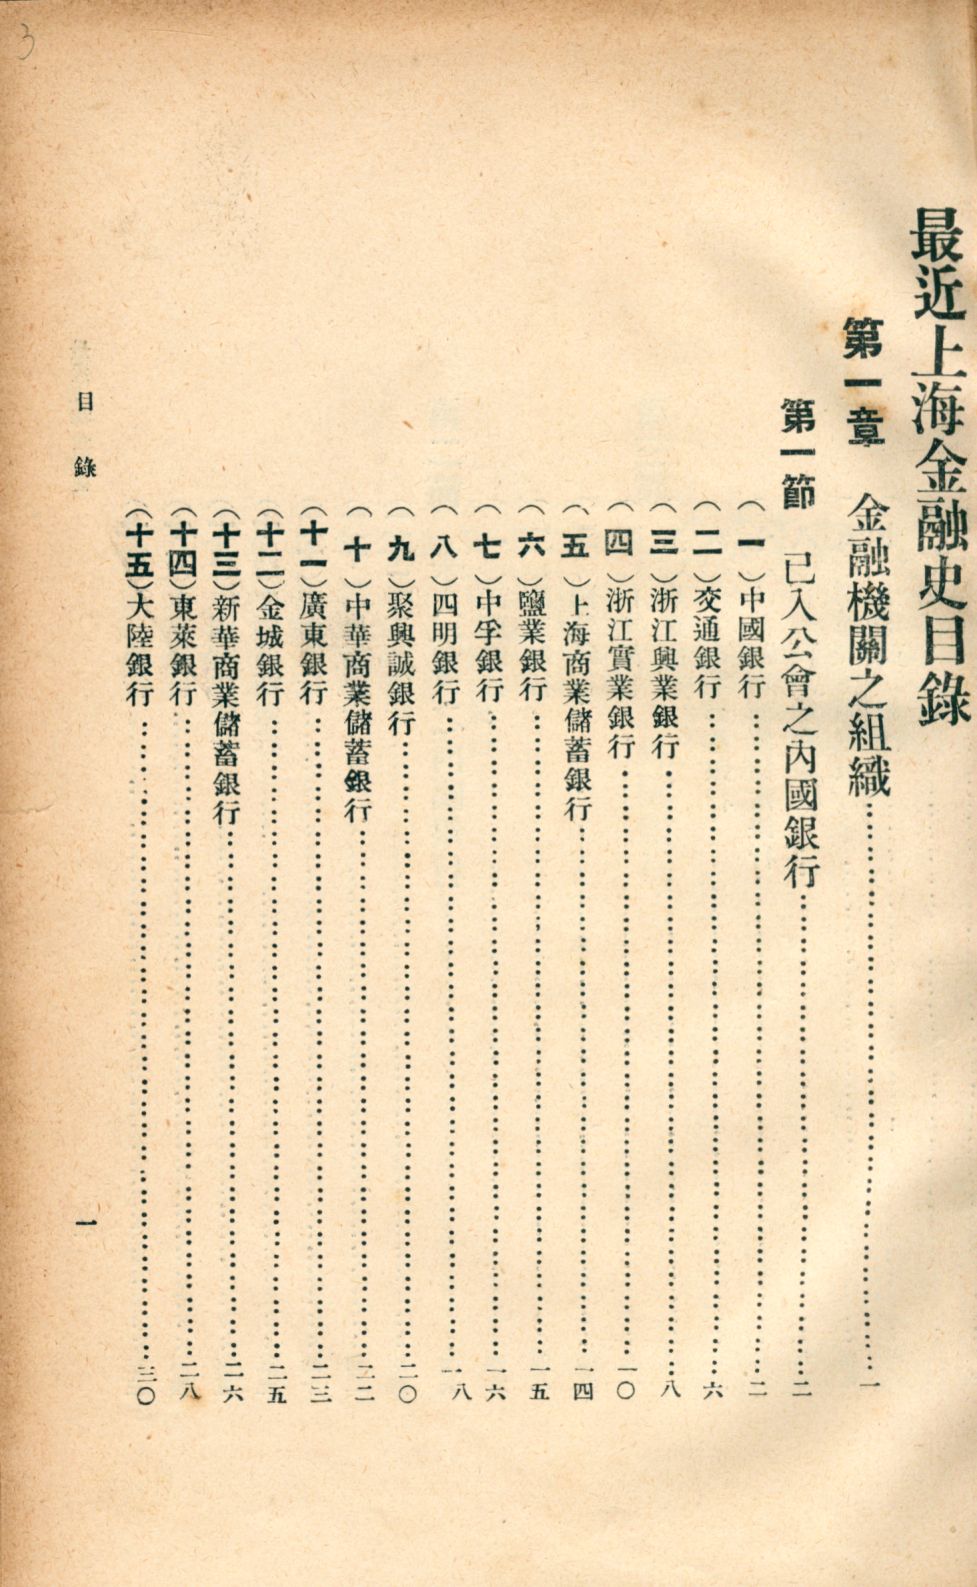 最近上海金融史目錄
第一章　金融機關之組織……一
第一節　已入公會之內國銀行……二
（一）中國銀行……二
（二）交通銀行……六
（三）浙江興業銀行……八
（四）浙江實業銀行……一〇
（五）上海商業儲蓄銀行……一四
（六）鹽業銀行……一五
（七）中孚銀行……一六
（八）四明銀行……一八
（九）聚興誠銀行……二〇
（十）中華商業儲蓄銀行……二二
（十一）廣東銀行……二三
（十二）金城銀行……二五
（十三）新華商業儲蓄銀行……二六
（十四）東萊銀行……二八
（十五）大陸銀行……三〇
目錄
一
3